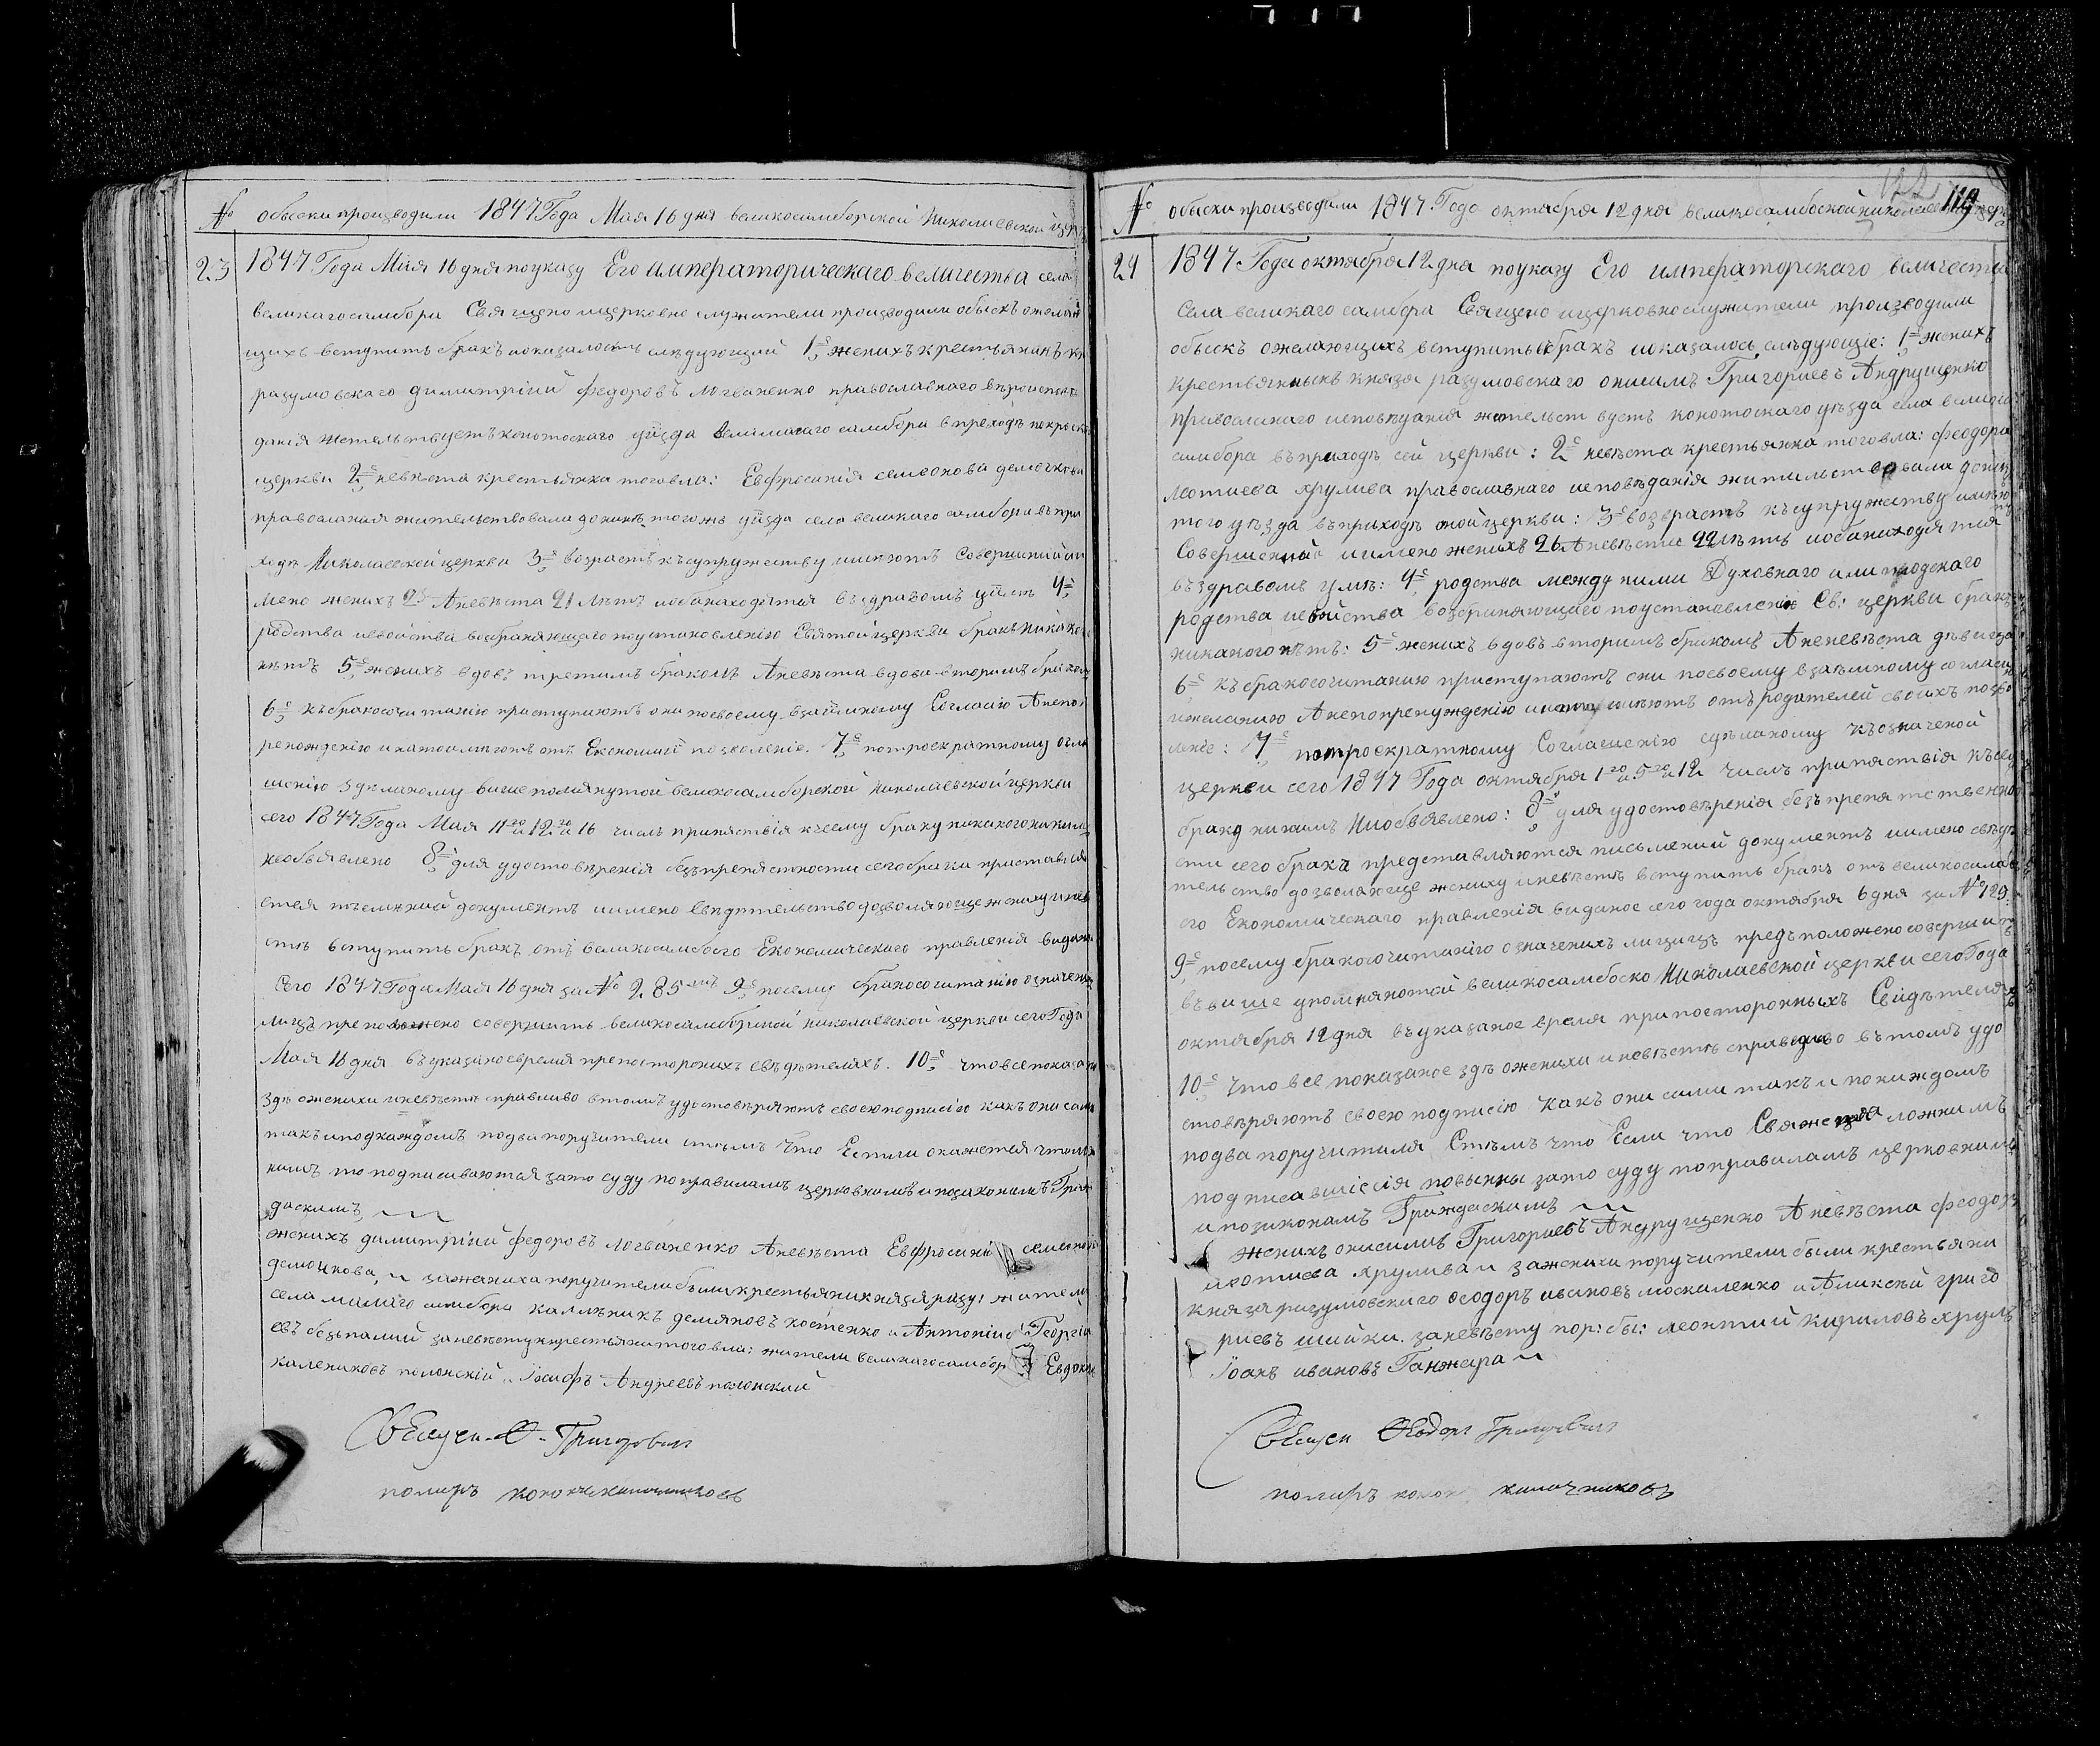 № обыски производили 1847 Года Мая 16 дня великосамборской Николаевской
23 1847 Года Мая 16 дня по указу Его императорическаго величества села
великаго самбора Священо ицерковно служители производили обыскъ о
щихъ вступить бракъ ионазалость следующий 1е женихъ крестьянинъ
разумовскаго димитрий федоровъ Логваненко православнаго
данія жительствуетъ конотоскаго уѣзда самбора в преходѣ
церкви 2е невѣста крестьянка тоговла: Евфросинія семеонова демочкова
православная жительствовала до нинѣ того жъ уѣзда села великаго самбора въ при
ходѣ Николаевской церкви 3е возрастъ къ супружеству имѣютъ совершинний
мено женихъ Аневѣста 21 лѣтъ иоба находятся въ здравомъ умѣ 4е
родства исвойства возбраняющаго поустановленію Святой церкви бракъ никако
нѣтъ 5е женихъ вдовъ третимъ бракомъ Аневѣста вдова вторимъ
6е къ бракосочитанію приступаютъ они посвоему взаимному Согласію Анепо
реножденію от Економий позволеніе. 7е потроекратному огла
шенію здѣланому вишепомянутой великосамборской николаевской церкви
сего 1847 Года Мая 11го и 12го и 16 числъ припяствія къ сему браку никакого никимъ
необъявлено 8е для удостовѣренія безъпрепятности сего брака
ется писмений документъ имено свидѣтельство дозволяюще жениху и невѣ
стѣ вступить бракъ отъ великосамбоского Економическаго правленія
Сего 1847 Года Мая 16 дня за № 285 9е посему бракосочитанію означен
лицъ преположено совершить великосамборской николаевской церкви сего Года
Мая 16 дня въ указаное время препосторонихъ свѣдѣтеляхъ. 10е что все показа
здѣ о женихи иневѣстѣ справливо втомъ удостовѣряютъ своею подписію какъ они сами
такъ и по каждомъ подва поручители стѣмъ что Естли окажется что
нимъ то подписиваются зато суду по правиламъ церковнимъ и по законамъ Граж
даскимъ
женихъ димитрий федоровъ логваненко Аневѣста Евфросинія семеонова
демочкова, зажениха поручители были крестьяни князя разу: жители
села малаго самбора каллѣникъ демяновъ костенко и Антоній Георгі
евъ безпалий заневѣсту крестьяни тоговла: жители великаго самбора Евдоки
калениковъ полонскій и Іосифъ Андреевъ полонский
Григорович
№ обыски производили 1847 Года октября 12 дня великосамбоской николаевской 119
24 1847 Года октября 12 дня поуказу Его императорскаго величества
села великаго самбора Священо ицерковнослужители производили
обыскъ ожелающихъ вступить в бракъ иоказалось слѣдующіе: 1е женихъ
крестьянынъ князя разумовскаго онисимъ Григориевъ Андрущенко
православнаго исповѣданія жительствуетъ конотоскаго уѣзда села великаго
самбора въ приходѣ сей церкви: 2е невѣста крестьянка тоговла: феодора
леотиева хрулива православнаго исповѣданія жительствовала донинѣ
того уѣзда въ приходѣ моей церкви: 3е возврастъ къ супружеству имѣю
Совершений иимено женихъ 26 Аневѣста 22 лѣтъ иоба находятся
въ здравомъ умѣ: 4е родства между ними Духовнаго или плодскаго
родства исвойства возбраняющаго поустановленію Св: церкви бракъ
никакого нѣтъ: 5е женихъ вдовъ вторимъ бракомъ Аненевѣста дѣвица
6е къ бракосочитанию приступаютъ они посвоему взаѣмному согласи
ижеланию Анепопренуждению имѣютъ отъ родителей своихъ позво
леніе: 7е потроекратному Согласшенію сдѣланому къ означеной
церкви сего 1847 Года октября 1го и 5го и 12 числъ припяствія къ сему
браку никимъ Ниобъявлено: 8е для удостовѣренія безъ препятственно
сти сего бракъ представляются писмений документъ имено свѣдѣ
тельство дозволяюще жениху иневѣстѣ вступить бракъ отъ великосамбо
го Економическаго правленія виданое сего года октября 6 дня за № 129.
9е посему бракосочитанію означенихъ лицицъ предположено совершить
въ више упомянотой великосамбоско Николаевской церкви сего Года
октября 12 дня въ указаное время при посторонныхъ Свидѣтеляхъ
10е Что все показаное здѣ оженихи иневѣстѣ справедиво въ томъ удо
стовѣряютъ своею подписію какъ они сами такъ и по каждомъ
подва поручителя Стѣмъ что Если что ложнимъ
подписавшієсія повынны зато суду поправиламъ церковнимъ
ипозаконамъ Граждаскимъ
женихъ онисимъ Григориевъ Андрущенко Аневѣста феодора
леотиева хрулива и зажениха поручители были крестьяни
князя разумовскаго Феодоръ ивановъ москаленко и Аликсѣй григо
риевъ шийка. заневѣсту пор: бы: леонтий кириловъ хруль
Іоанъ ивановъ Ганжара
Феодоръ Григорович